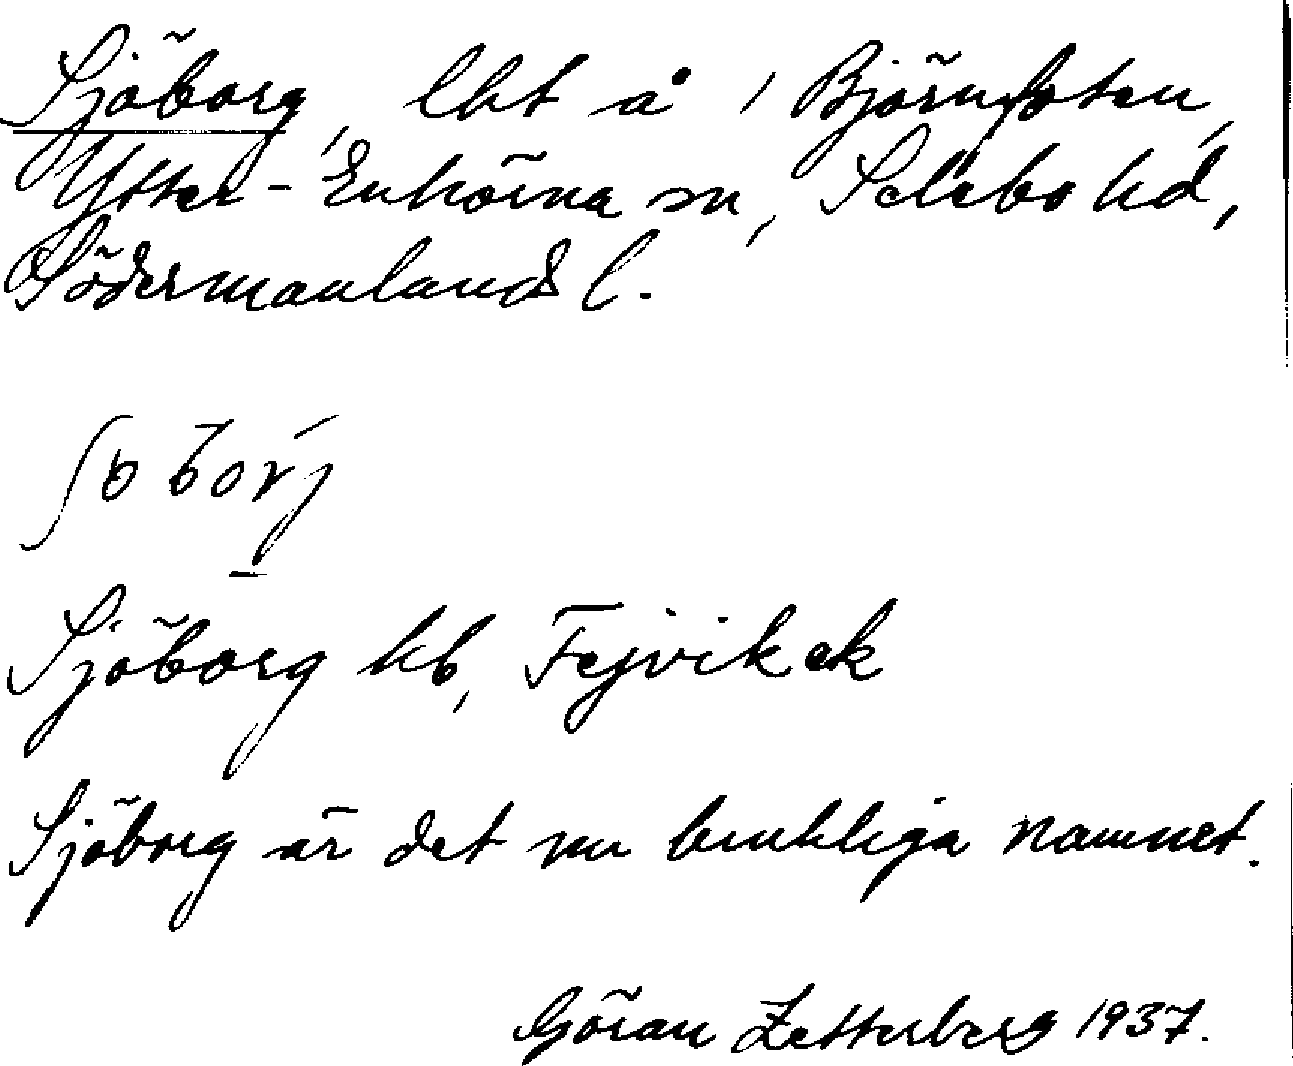 Sjöborg, lht å 1 Björnsten,
Ytter-Enhörna sn, Selebo hd,
Södermanlands l.
Sjöborg hb, Fejvik ek
Sjöborg är det nu brukliga namnet.
Göran Zetterberg 1937.